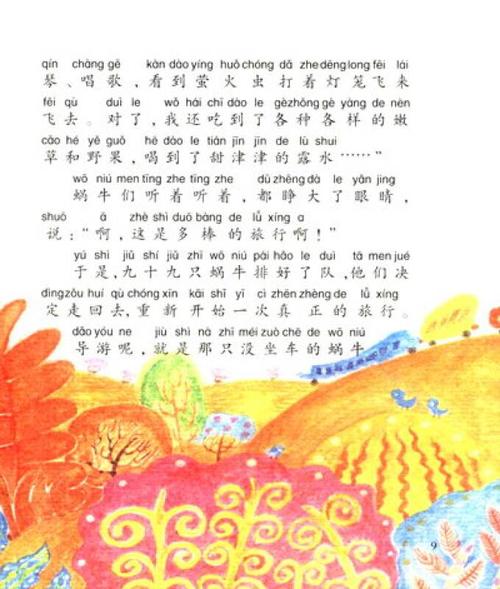 qín chàng gē kàn dào yíng huǒ chóng dǎ zhe dēng long fēi lái
琴、唱歌，看到萤火虫打着灯笼飞来
fēi qù duì le wǒ hái chī dào le gè zhǒng gè yàng de nèn
飞去。对了，我还吃到了各种各样的嫩
cǎo hé yě guǒ hē dào le tián jīn jīn de lù shuǐ
草和野果，喝到了甜津津的露水……”
wō niú men tīng zhe tīng zhe dū zhēng dà le yǎn jing
蜗牛们听着听着，都睁大了眼睛，
shuō à zhè shì duō bàng de lǚ xíng a
说：“啊，这是多棒的旅行啊！”
yú shì jiǔ shí jiǔ zhī wō niú pái hǎo le duì tā men jué
于是，九十九只蜗牛排好了队，他们决
dìng zǒu huí qù chóng xīn kāi shǐ yī cì zhēn zhèng de lǚ xíng
定走回去，重新开始一次真正的旅行。
dǎo yóu ne jiù shì nà zhī méi zuò chē de wō niú
导游呢，就是那只没坐车的蜗牛
9